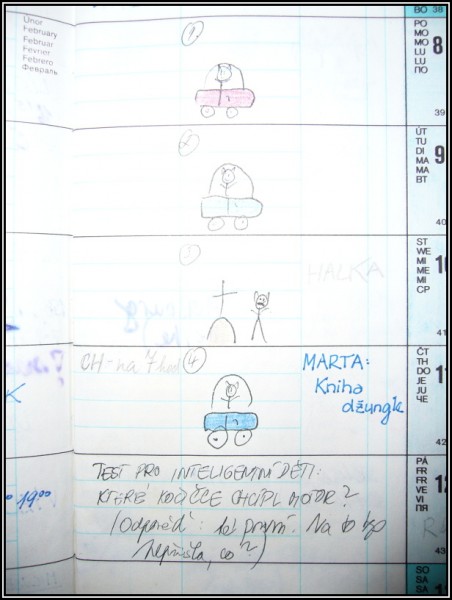 BO 38
Únor
February
Februar
Février
Febrero
Февраль
1
PO
MO
MO
LU
LU
ПО
8
39
2
ÚT
TU
DI
MA
MA
ВТ
9
40
3
HALKA
ST
WE
MI
ME
MI
СР
10
41
CH-na 7 hod
4
MARTA:
Kniha
džungle
ČT
TH
DO
JE
JU
ЧЕ
11
42
19 00
TEST PRO INTELIGENTNÍ DĚTI:
KTERÉ KOČIČCE CHCÍPL MOTOR?
(Odpověď: té první. Na to bys
nepřišla, co?)
PÁ
FR
FR
VE
VI
ПЯ
12
43
SO
SA
SA